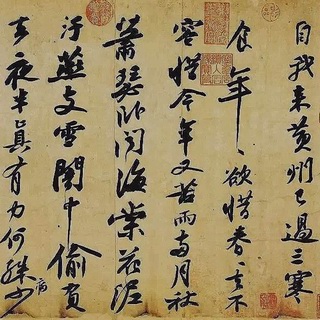 自我來黃州已過三寒
食年〻欲惜春〻去不
容惜今年又苦雨兩月秋
蕭瑟卧聞海棠花泥
汙燕支雪闇中偷負
去夜半真有力何殊少
病